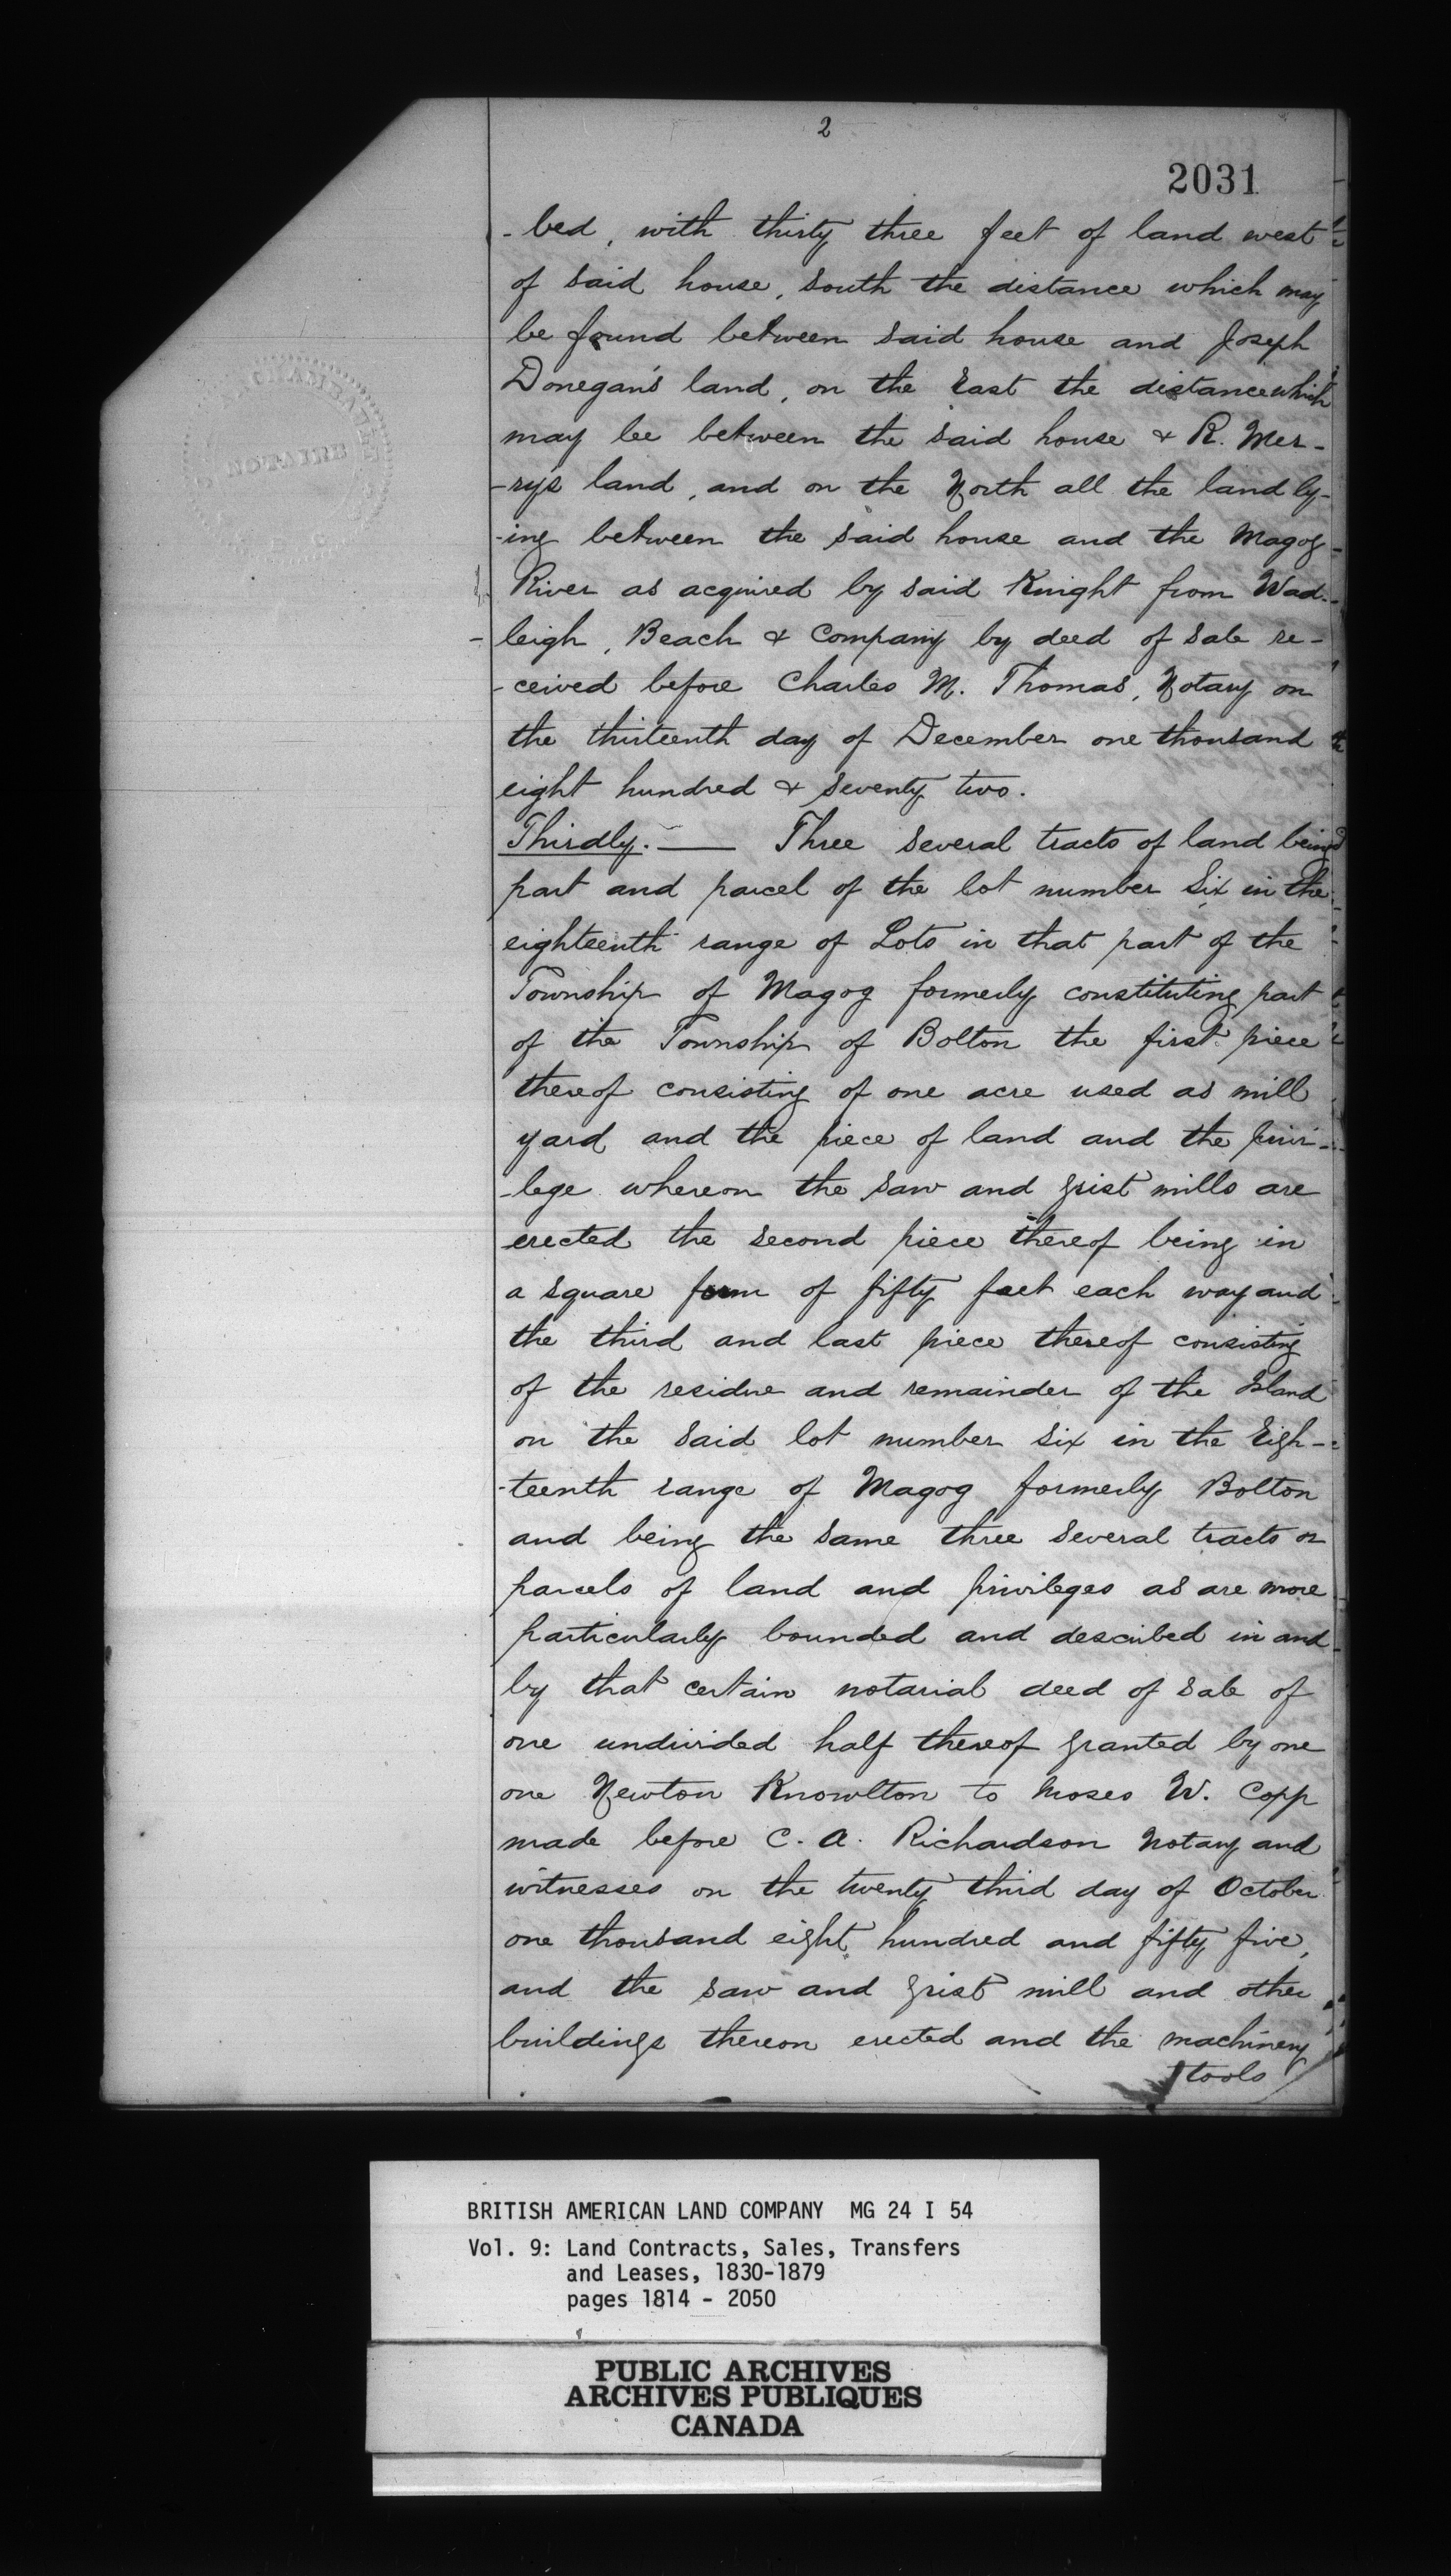 2
2031
- bed, with thirty three feet of land west
of said house, south the distance which may
be found between said house and Joseph
Donegan's land, on the East the distance which
may be between the said house & R. Mer-
-ry's land, and on the North all the land ly-
-ing between the said house and the Magog
River as acquired by said Knight from Wad-
leigh, Beach & Company by deed of sale re-
-ceived before Charles M. Thomas, Notary on
the thirteenth day of December one thousand
eight hundred & seventy two.
Thirdly. — Three several tracts of land being
part and parcel of the lot number Six in the
eighteenth range of Lots in that part of the
Township of Magog formerly constituting part
of the Township of Bolton the first piece
thereof consisting of one acre used as mill
yard and the piece of land and the privi-
-lege whereon the saw and grist mills are
erected the second piece thereof being in
a square form of fifty feet each way and
the third and last piece thereof consisting
of the residue and remainder of the Island
on the said lot number six in the Eigh-
-teenth range of Magog formerly Bolton
and being the same three several tracts or
parcels of land and privileges as are more
particularly bounded and described in and
by that certain notarial deed of sale of
one undivided half thereof granted by one
one Newton Knowlton to Moses W. Copp
made before C. A. Richardson Notary and
witnesses on the twenty third day of October
one thousand eight hundred and fifty five,
and the saw and grist mill and other
buildings thereon erected and the machinery
tools
NOTAIRE
BRITISH AMERICAN LAND COMPANY MG 24 I 54
Vol. 9: Land Contracts, Sales, Transfers
and Leases, 1830-1879
pages 1814 - 2050
PUBLIC ARCHIVES
ARCHIVES PUBLIQUES
CANADA